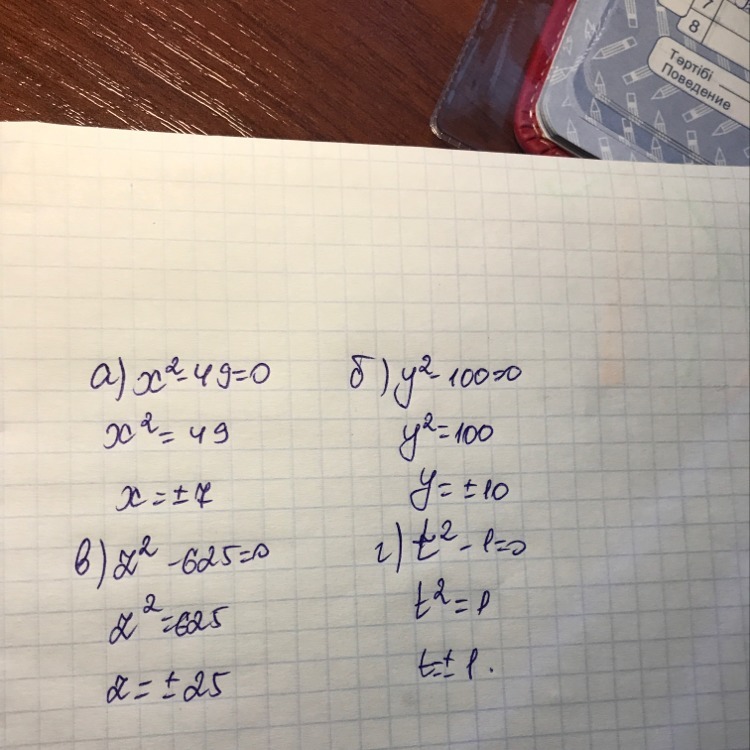 7
8
Тәртібі
Поведение
а) x²-49=0
x²=49
x=±7
б) y²-100=0
y²=100
y=±10
в) z²-625=0
z²=625
z=±25
г) t²-1=0
t²=1
t=±1.